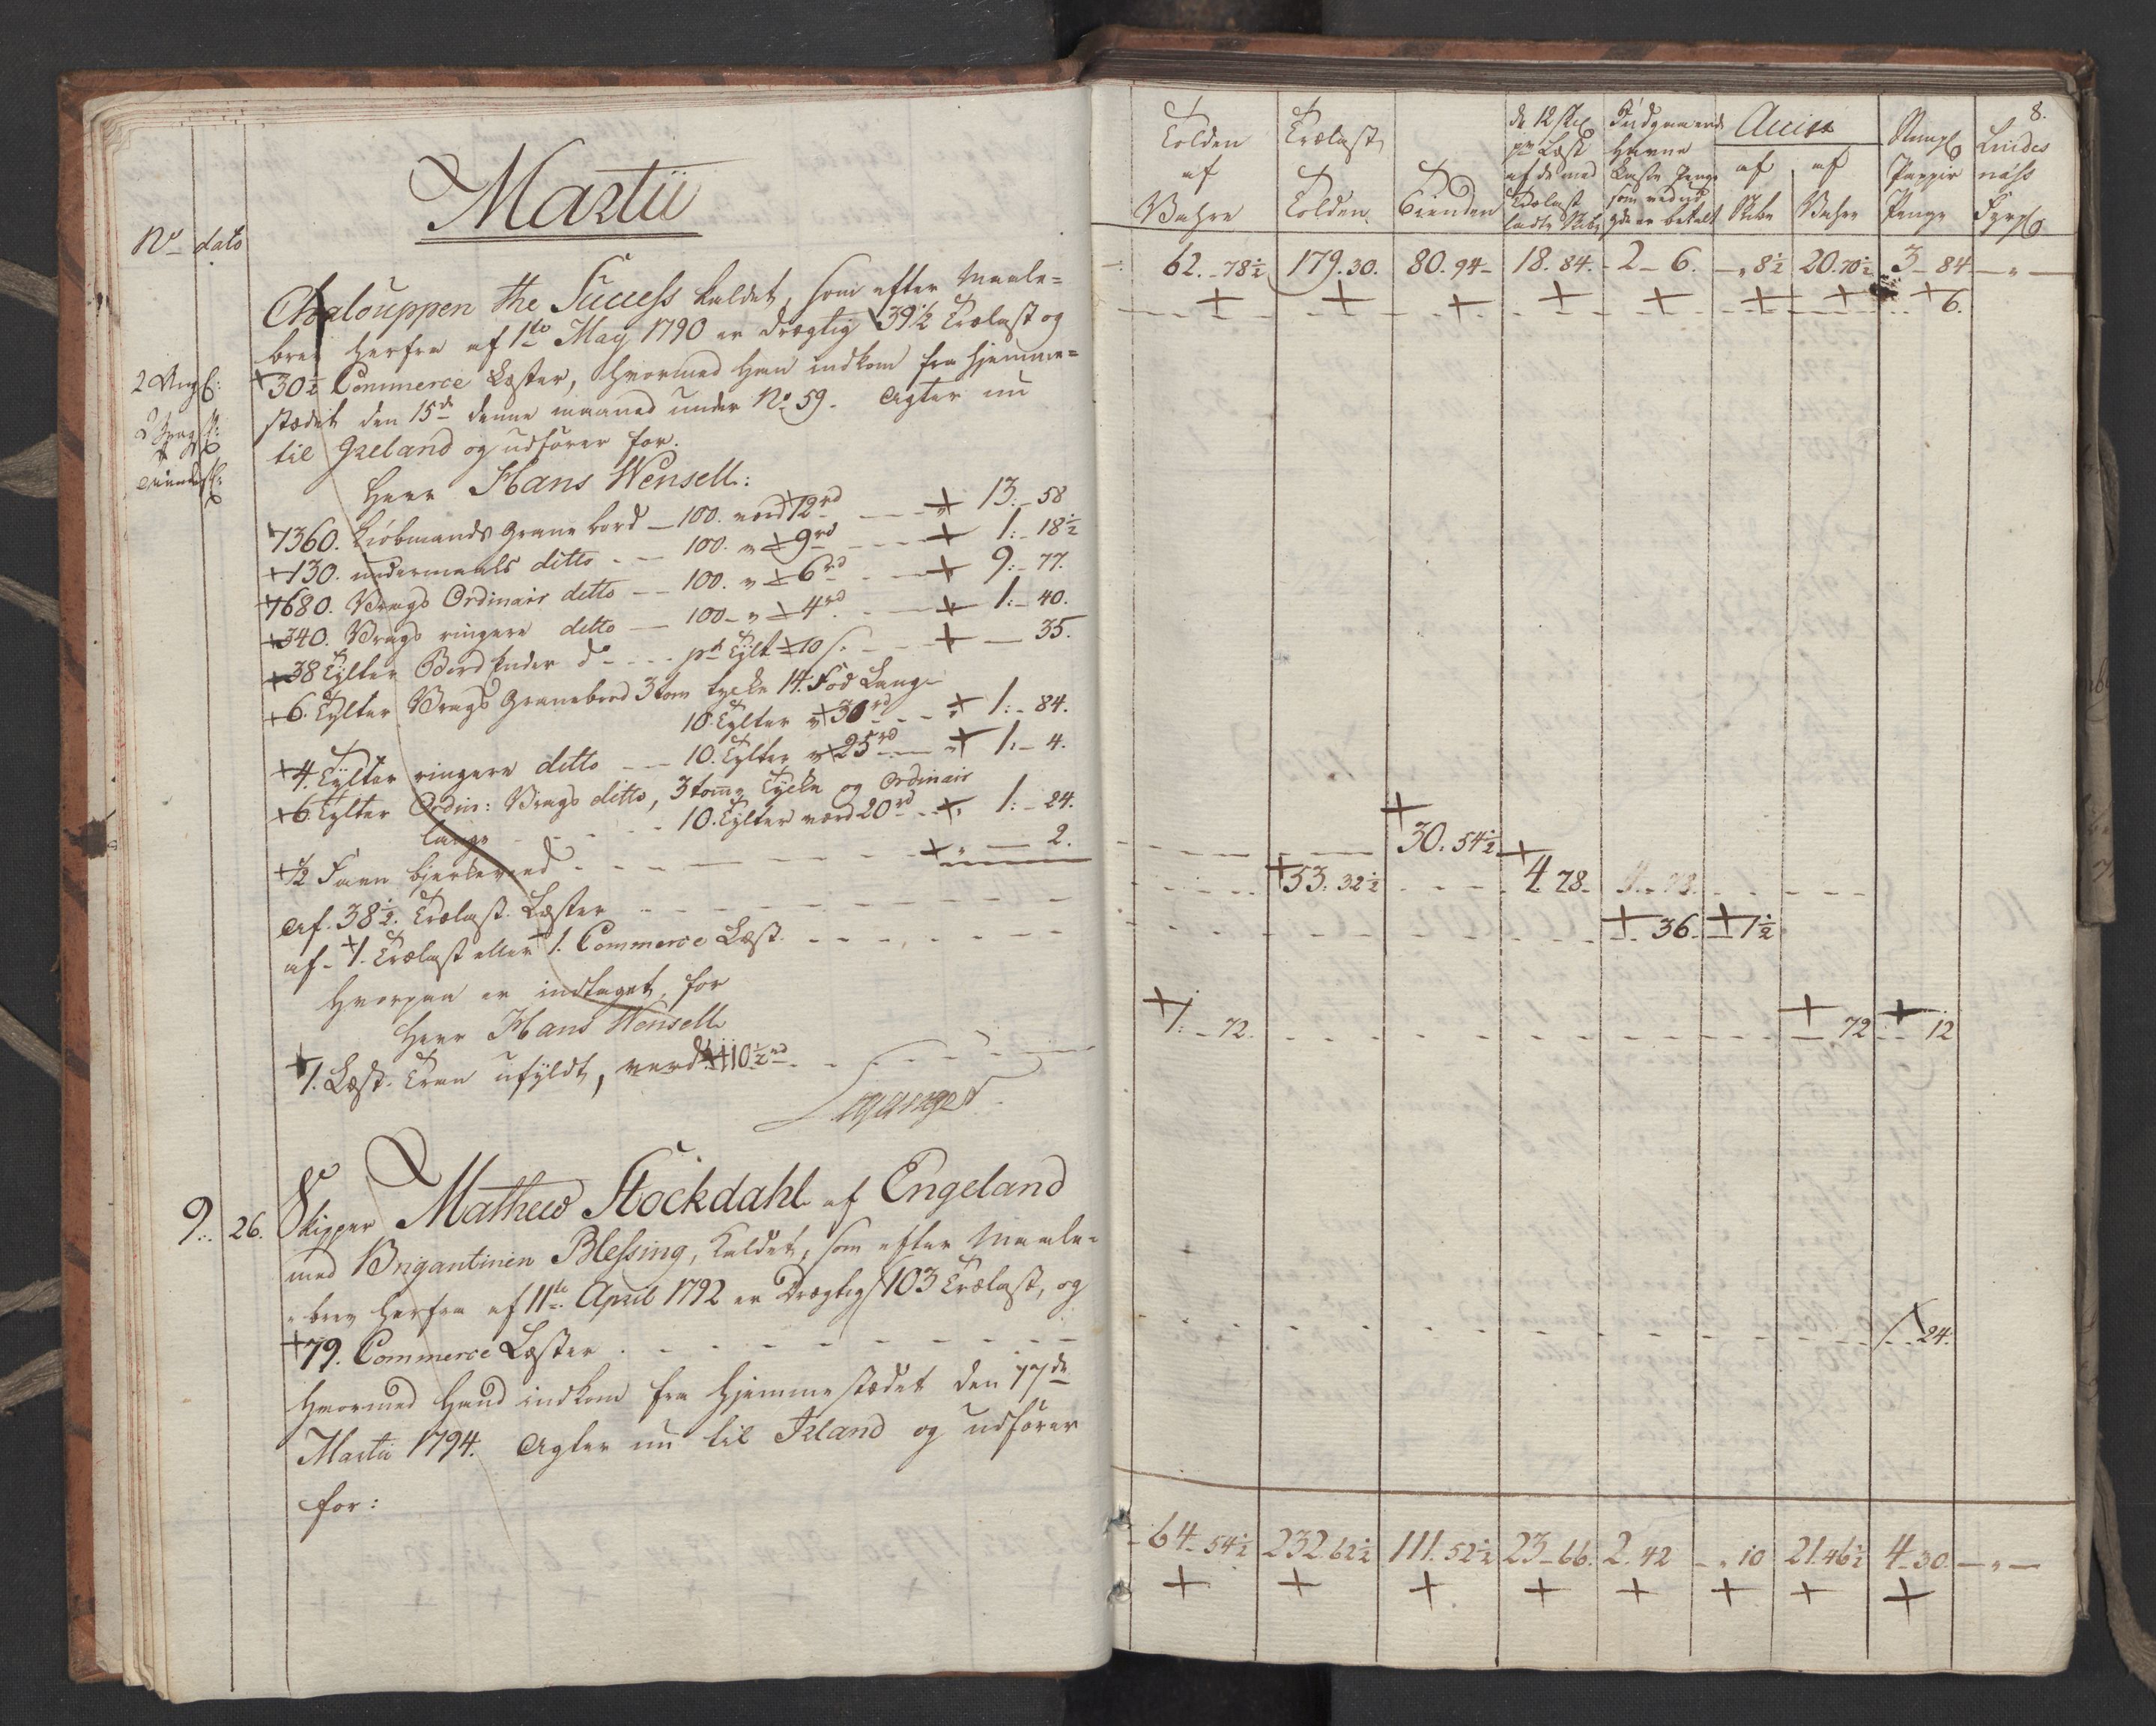 Martii
No dato
Chalouppen the Success kaldet, som efter Maale-
brev herfra af 1te May 1790 er drægtig 39 1/2 Trælast og
30 1/2 Commerce Læster, hvormed han indkom fra Hjemme-
stædet den 15de denne maaned under No 59. Agter nu
til Ireland og udfører for.
Herr Hans Wensell:
1360. Kiøbmands Grane bord - 100. værd 12 rd - 13:-58
130. undermaals ditto - 100. " 9 rd - 1:-18 1/2
1680. Vrags Ordinair ditto - 100. " 6 rd - 9:-77.
340. Vrags ringere ditto - 100 - " 4 rd - 1:-40.
38 Tylter Bord Ender do - pr Tylt 10 s. - 35.
6. Tylter Vrags Granebord 3 tom tycke 14 Fod Lange
10. Tylter " 30 rd - 1:-84.
4. Tylter ringere ditto - 10. Tylter " 25 rd - 1:-4.
6. Tylter Ordin: Vrags ditto, 3 tomr Tycke og Ordinair
lange - 10. Tylter værd 20 rd - 1:-24.
1/2 Favn bjerkeved - 2.
Af 38 1/2. Trælast Læster
af - 1. Trælast eller 1. Commerce Læst.
Hvorpaa er indtaget for
Herr Hans Wensell
1. Læst. Tran ufyldt, værd 110 1/2 rd
9. 26. Skipper Mathew Stockdahl af Engeland
med Brigantinen Blessing, kaldet, som efter Maale-
brev herfra af 11te April 1792 er Drægtig 103 Trælast, og
79. Commerce Læster
hvormed Hand indkom fra Hjemmestædet den 17de
Martii 1794. Agter nu til Irland og udfører
for:
8.
Tolden af Vahre
Trælast Tolden
Tienden
de 12 skl pr Læst af de med Trælast ladte Skibe
Accise
af Skibe
af Vahre
Papir Penge
62.-78 1/2 179.30. 80.94 18.84. 2-6. " 8 1/2 20.70 1/2 3-84 - " -
6.
30.54 1/2
53.32 1/2 4.78. 4.-78.
36. 1 1/2
1.-72. 72 12
24.
64-54 1/2 232.62 1/2 111.52 1/2 23-66. 2.42 - " 10 21.46 1/2 4-30. - " -